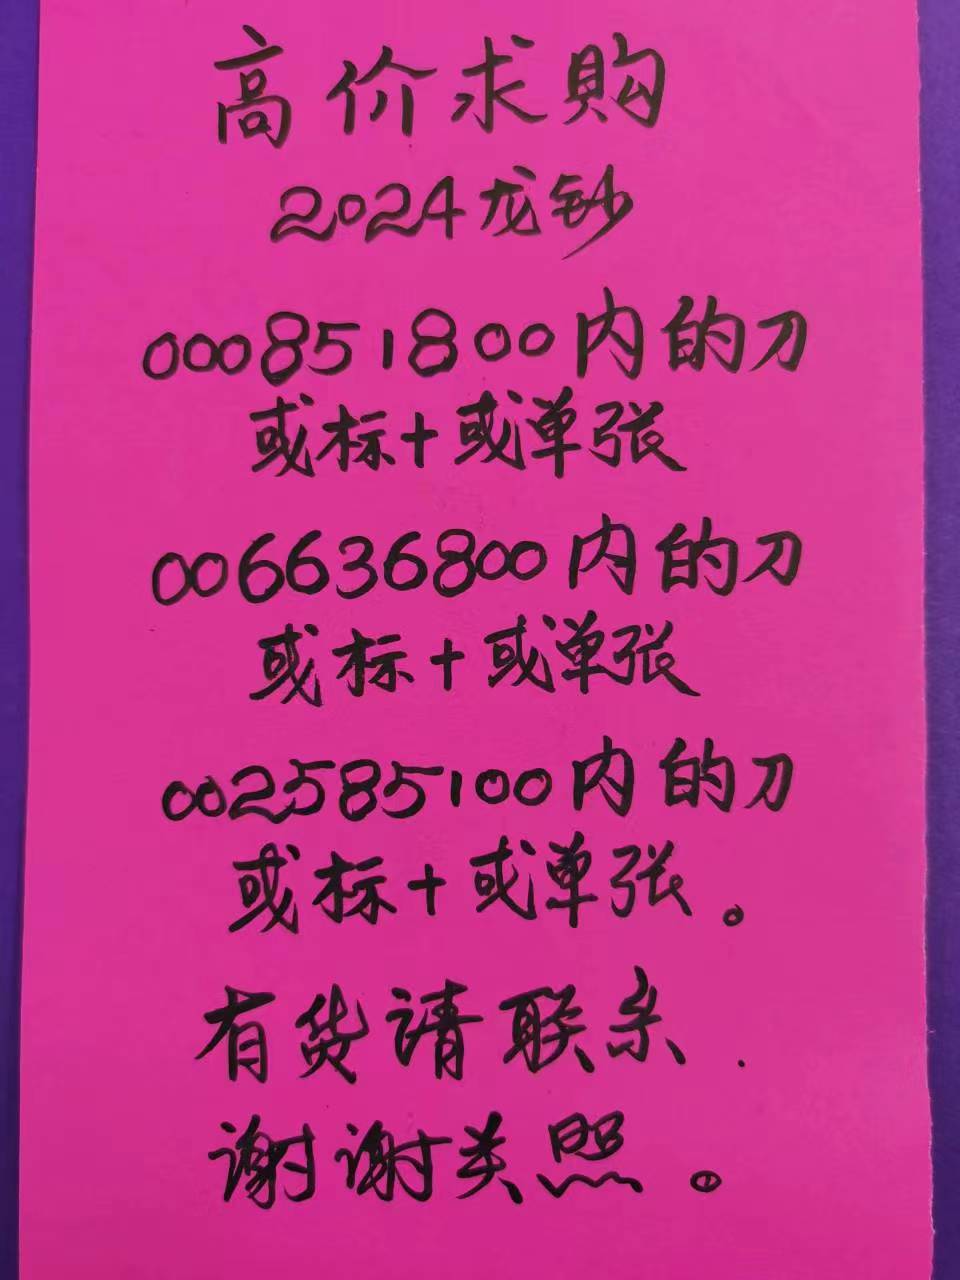 高价求購
2024龙钞
000851800内的刀
或标十或单张
006636800内的刀
或标十或单张
002585100内的刀
或标十或单张。
有货请联系.
谢谢关照。